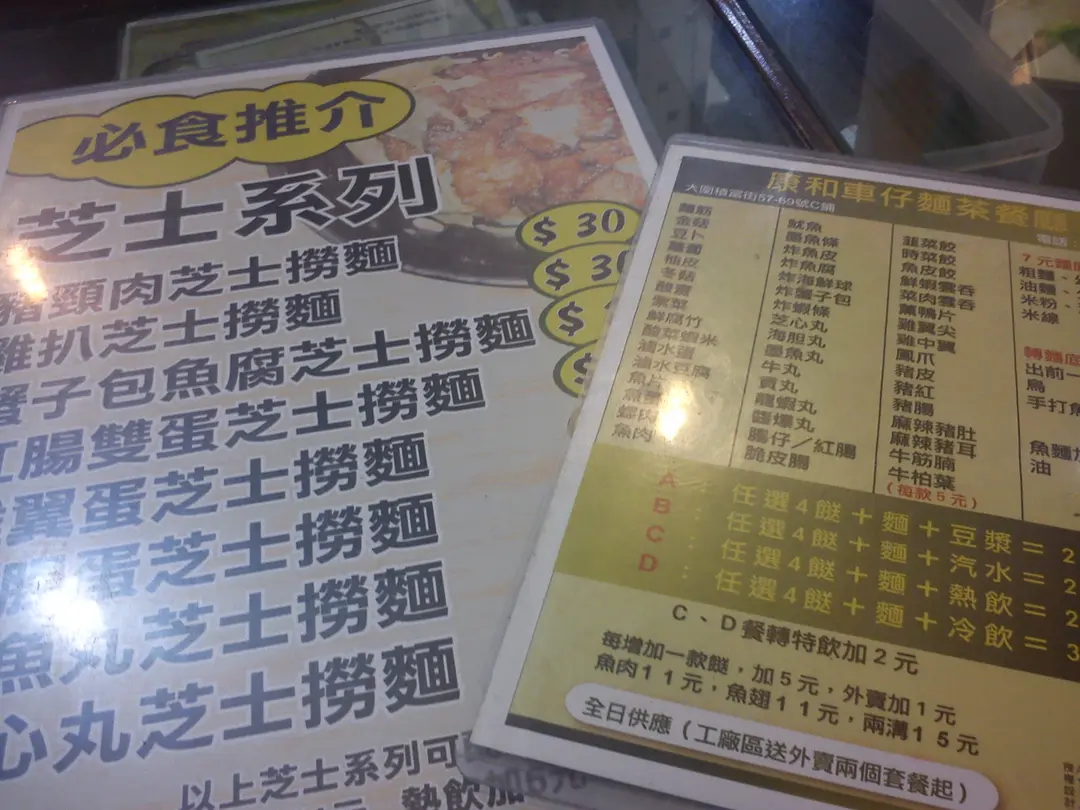 必食推介
芝士系列
豬頸肉芝士撈麵
$ 30
雞扒芝士撈麵
蟹子包魚腐芝士撈麵
紅腸雙蛋芝士撈麵
翼蛋芝士撈麵
腸蛋芝士撈麵
魚丸芝士撈麵
心丸芝士撈麵
以上芝士系列可
熱飲加
康和車仔麵茶餐廳
大圍積富街57-69號C舖
電話:
麵筋
金菇
豆卜
蘿蔔
柚皮
冬菇
酸齋
紫菜
鮮腐竹
酸菜蝦米
滷水蛋
滷水豆腐
魚片
魚肉
魷魚
墨魚條
炸魚皮
炸魚腐
炸海鮮球
炸蟹子包
炸蝦條
芝心丸
海胆丸
墨魚丸
牛丸
貢丸
龍蝦丸
腸仔/紅腸
脆皮腸
韮菜餃
時菜餃
魚皮餃
鮮蝦雲吞
菜肉雲吞
薰鴨片
雞翼尖
雞中翼
鳳爪
豬皮
豬紅
豬腸
麻辣豬肚
麻辣豬耳
牛筋腩
牛柏葉
(每款5元)
7元麵
粗麵、
油麵、
米粉、
米線
轉麵底
出前一
烏
手打魚
魚麵加
油
A : 任選4餸+麵+豆漿=2
B : 任選4餸+麵+汽水=2
C : 任選4餸+麵+熱飲=2
D : 任選4餸+麵+冷飲=3
C、D餐轉特飲加2元
每增加一款餸,加5元,外賣加1元
魚肉11元,魚翅11元,兩溝15元
全日供應(工廠區送外賣兩個套餐起)